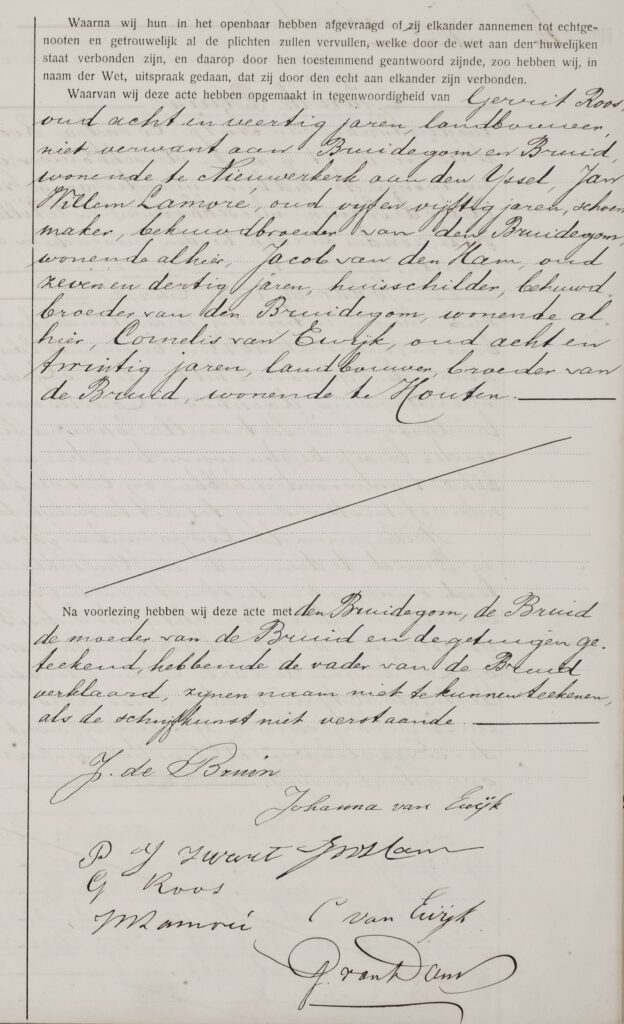 Waarna wij hun in het openbaar hebben afgevraagd of zij elkander aannemen tot echtge-
nooten en getrouwelijk al de plichten zullen vervullen, welke door de wet aan den huwelijken
staat verbonden zijn, en daarop door hen toestemmend geantwoord zijnde, zoo hebben wij, in
naam der Wet, uitspraak gedaan, dat zij door den echt aan elkander zijn verbonden.
Waarvan wij deze acte hebben opgemaakt in tegenwoordigheid van Gerrit Roos,
oud acht en veertig jaren, landbouwer,
niet verwant aan Bruidegom en Bruid,
wonende te Nieuwerkerk aan den Yssel, Jan
Willem Lamoré, oud vijf en vijftig jaren, schoen
maker, behuwdbroeder van den Bruidegom,
wonende alhier, Jacob van den Ham, oud
zeven en dertig jaren, huisschilder, behuwd
broeder van den Bruidegom, wonende al
hier, Cornelis van Ewijk, oud acht en
twintig jaren, landbouwer, broeder van
de Bruid, wonende te Houten.
Na voorlezing hebben wij deze acte met den Bruidegom, de Bruid
de moeder van de Bruid en de getuigen ge-
teekend, hebbende de vader van de Bruid
verklaard, zijnen naam niet te kunnen teekenen,
als de schrijfkunst niet verstaande.
J. de Bruin
Johanna van Ewijk
P J Zwart
G Roos
C van Ewijk